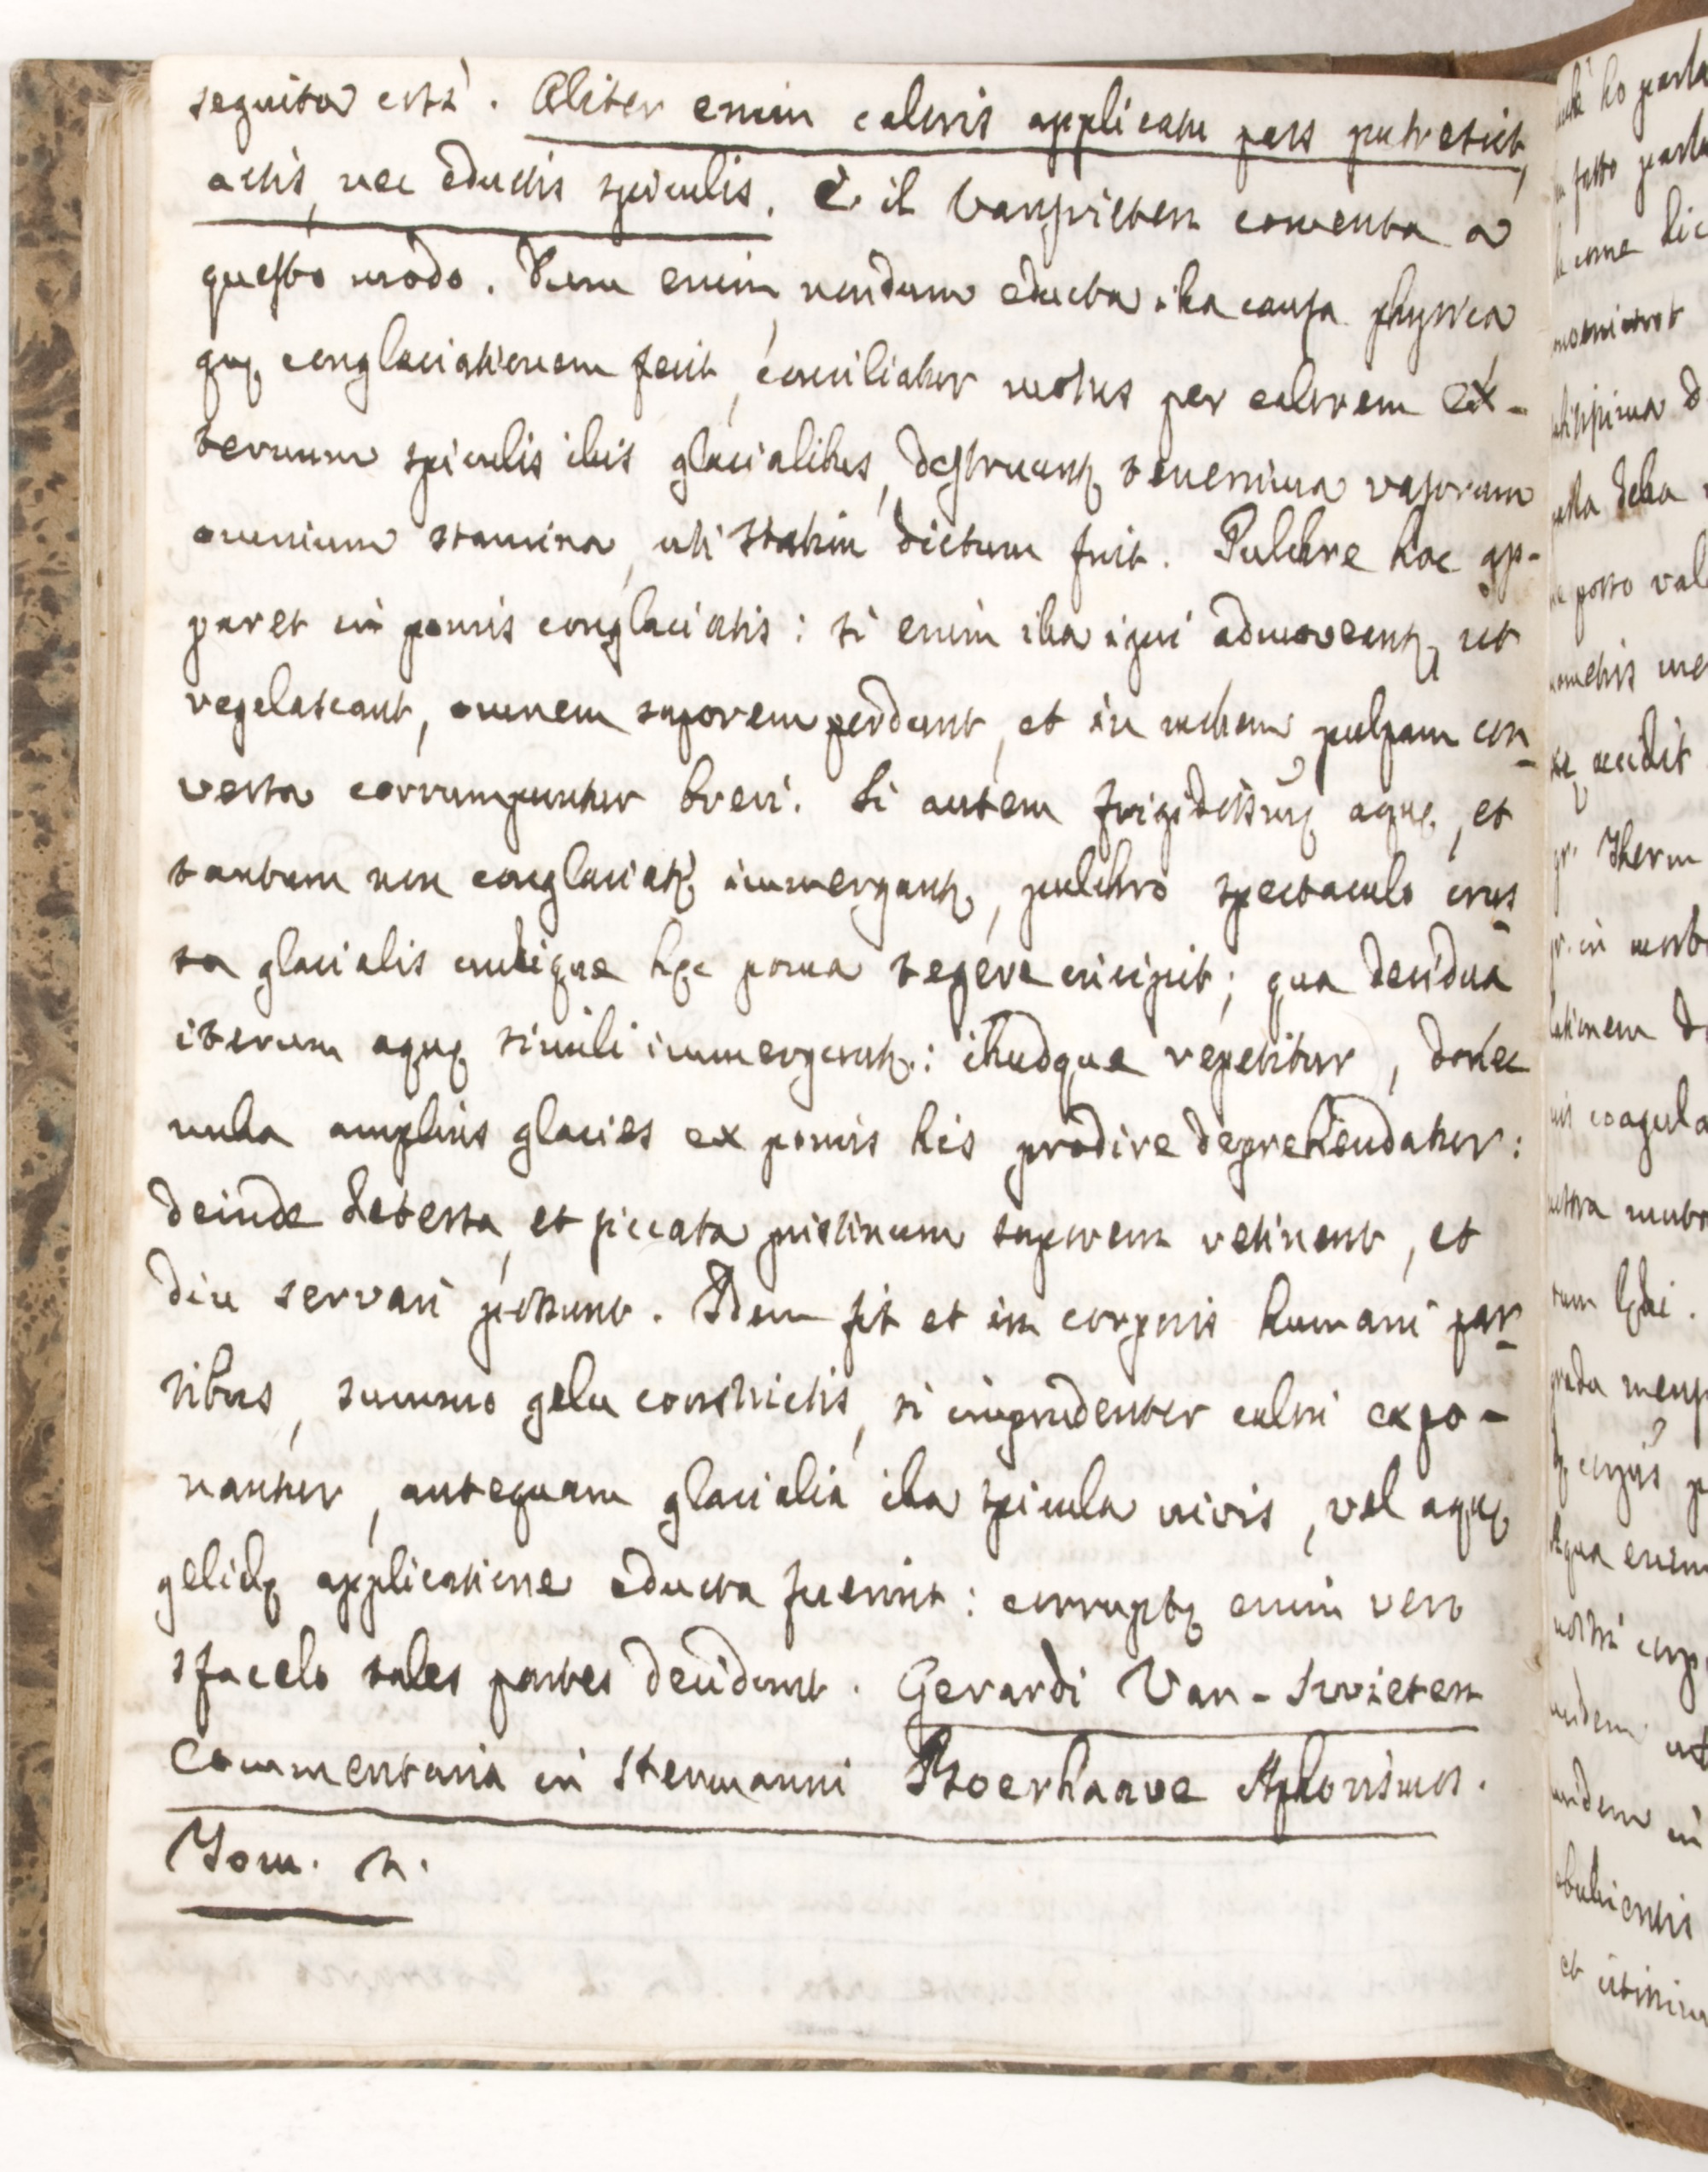 seguita così. Aliter enim caloris applicatu pars putrescit,
actis, nec eductis spiculis. E il Vanswieten comenta a
questo modo. Dum enim, nondum educta illa causa physica
quę conglaciationem fecit, conciliatur motus per calorem ex-
ternum spiculis illis glacialibus, destruuntꝗ tenerrima vasorum
omnium stamina, uti statim dictum fuit. Pulchre hoc ap-
paret in pomis conglaciatis: si enim illa igni admoveantꝗ ut
regelascant, omnem saporem perdunt, et in mollem pulpam con-
versa corrumpuntur brevi. Si autem frigidissimę aquę, et
tantum non conglaciatę immergantꝗ, pulchro spectaculo crus-
ta glacialis undique hęc poma tegere incipit; qua decidua
iterum aquę simili immerguntꝗ: illudque repetitur, donec
nulla amplius glacies ex pomis his prodire deprehendatur:
deinde detersa, et siccata pristinum saporem retinent, et
diu servari possunt. Idem fit et in corporis humani par-
tibus, summo gelu constrictis, si imprudenter calori expo-
nantur, antequam glacialia illa spicula nivis, vel aquę
gelidę applicatione educta fuerint: corruptę enim vero
sfacelo tales partes decidunt. Gerardi Van-Swieten
Commentaria in Hermanni Boerhaave Aphorismos.
Tom. 2.